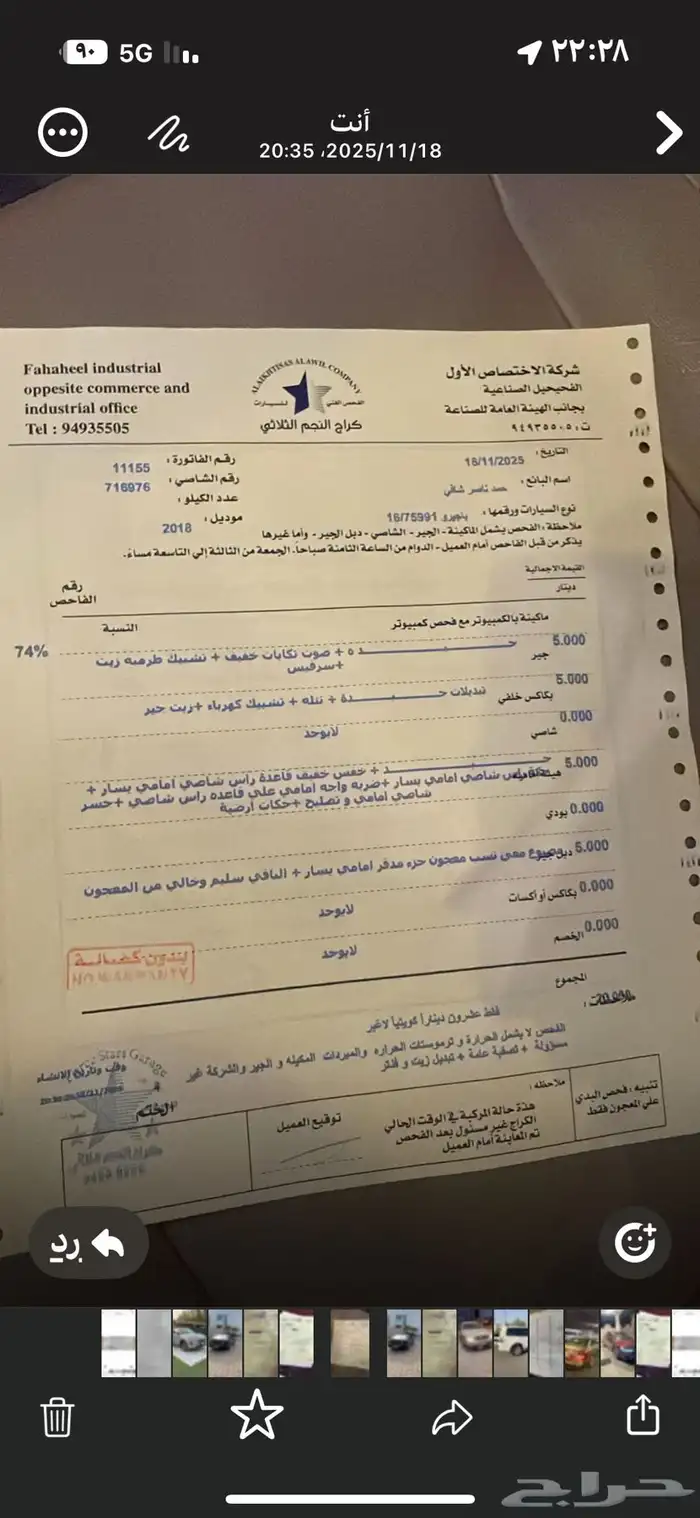 ٩٠
5G
٢٢:٢٨
أنت
2025/11/18، 20:35
Fahaheel industrial
oppesite commerce and
industrial office
Tel : 94935505
ALAIKHTISAS ALAWIL COMPANY
الفحص الفني للسيارات
كراج النجم الثلاثي
شركة الاختصاص الأول
الفحيحيل الصناعية
بجانب الهيئة العامة للصناعة
ت: ٩٤٩٣٥٥٠٥
التاريخ: 18/11/2025
رقم الفاتورة: 11155
اسم البائع: حمد ناصر شافي
رقم الشاصي: 716976
عدد الكيلو:
نوع السيارات ورقمها: باجيرو 16/75991
موديل: 2018
ملاحظة: الفحص يشمل الماكينة - الجير - الشاصي - دبل الجير - وأما غيرها
يذكر من قبل الفاحص أمام العميل - الدوام من الساعة الثامنة صباحاً. الجمعة من الثالثة إلي التاسعة مساءً.
القيمة الاجمالية
دينار
رقم الفاحص
ماكينة بالكمبيوتر مع فحص كمبيوتر
النسبة
5.000
74%
جيده + صوت تكايات خفيف + تشبيك طرمبه زيت
+سرفيس
جير
5.000
تبديلات جيدة + نتله + تشبيك كهرباء +زيت جير
بكاكس خلفي
0.000
لايوجد
شاصي
5.000
جيد + خفس خفيف قاعدة راس شاصي امامي يسار +
راس شاصي امامي يسار +ضربه واجه امامي علي قاعده راس شاصي +جسر
شاصي امامي و تصليح +حكات ارضية
0.000
بودي
5.000
مصبوغ معي نسب معجون جزء مدقر امامي يسار + الباقي سليم وخالي من المعجون
دبل جير
0.000
لايوجد
بكاكس أو أكسات
0.000
لايوجد
الخصم
بدون كفالة
NO WARRANTY
المجموع
20.000
ملاحظات:
فقط عشرون ديناراً كويتياً لاغير
الفحص لا يشمل الحرارة و ترموستات الحراره والمبردات المكينه و الجير والشركة غير
مسؤولة + تصفية عامة + تبديل زيت و فلتر
Stars Garage
وقت وتاريخ الانشاء
الختم
توقيع العميل
ملاحظه:
هذة حالة المركبة في الوقت الحالي
الكراج غير مسئول بعد الفحص
تم المعاينة أمام العميل
تنبيه: فحص البدي
علي المعجون فقط
رد
حراج